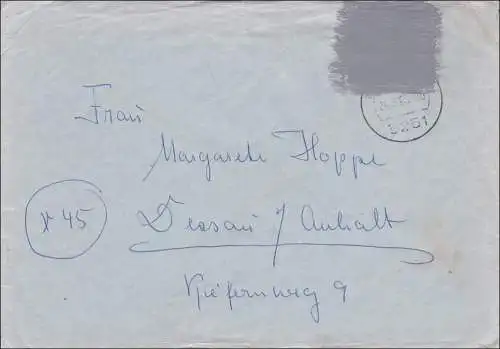 Frau
Margarete Hoppe
x 45
Dessau / Anhalt
Kiefernweg 9